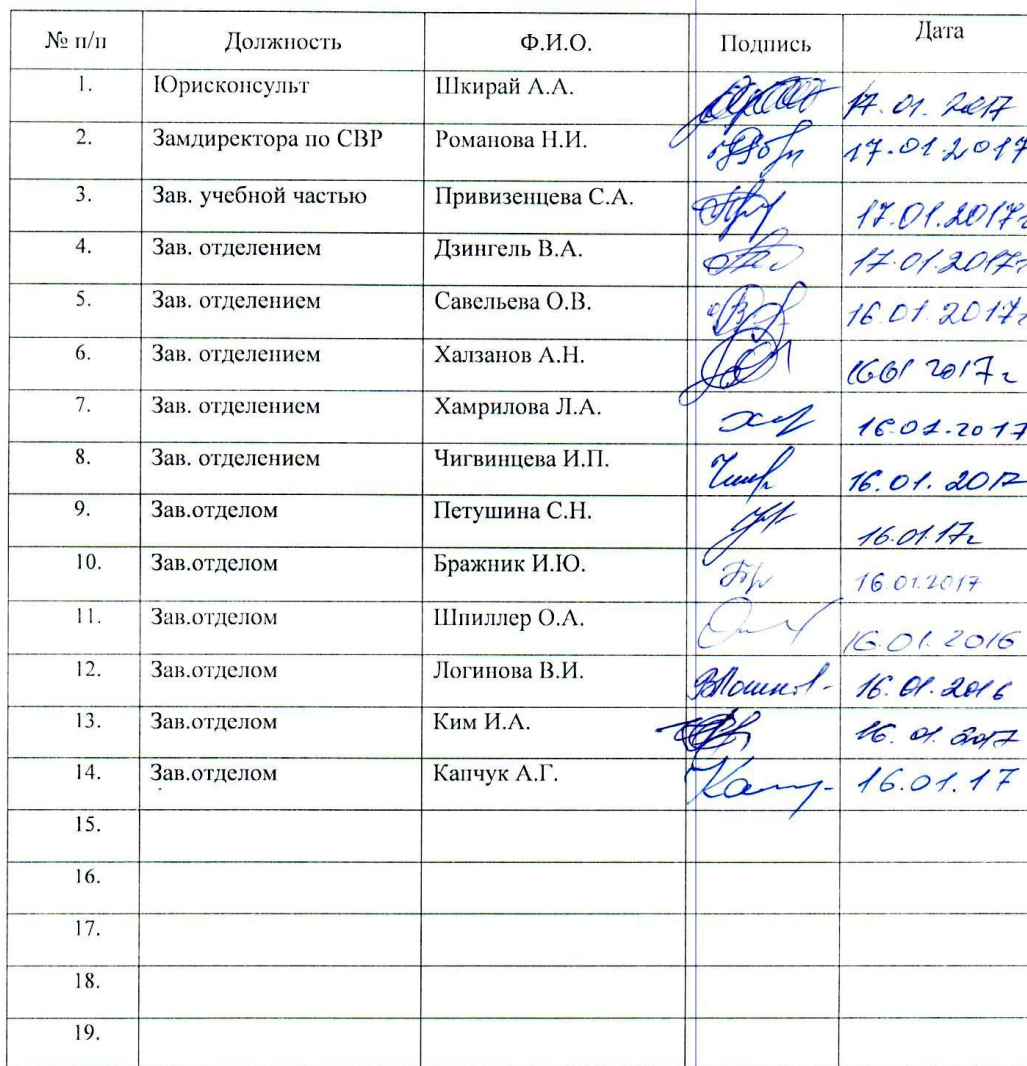 № п/п Должность Ф.И.О. Подпись Дата
1. Юрисконсульт Шкирай А.А. 17.01.2017
2. Замдиректора по СВР Романова Н.И. 17.01.2017
3. Зав. учебной частью Привизенцева С.А. 17.01.2017г
4. Зав. отделением Дзингель В.А. 17.01.2017г
5. Зав. отделением Савельева О.В. 16.01.2017г
6. Зав. отделением Халзанов А.Н. 16 01 2017г
7. Зав. отделением Хамрилова Л.А. 16.01.2017
8. Зав. отделением Чигвинцева И.П. 16.01.2017
9. Зав.отделом Петушина С.Н. 16.01.17г
10. Зав.отделом Бражник И.Ю. 16.01.2017
11. Зав.отделом Шпиллер О.А. 16.01.2016
12. Зав.отделом Логинова В.И. 16.01.2016
13. Зав.отделом Ким И.А. 16.01.2017
14. Зав.отделом Капчук А.Г. 16.01.17
15.
16.
17.
18.
19.